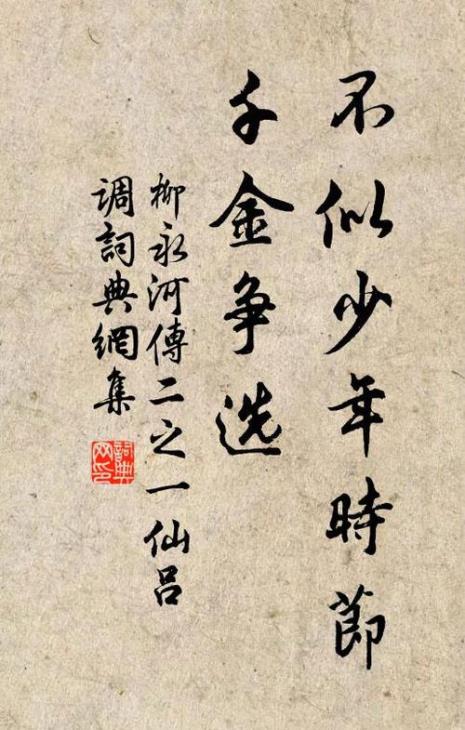 不似少年時節
千金争选
柳永河傳二之一仙吕
调詞典網集
詞典网印